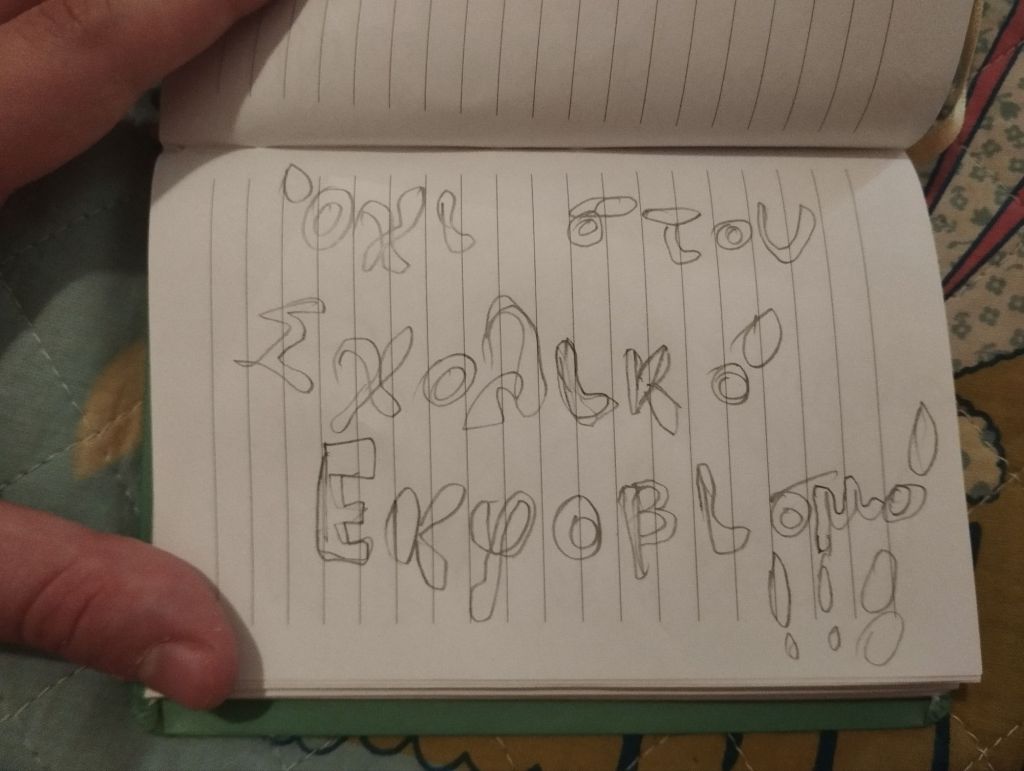 Όχι στου
Σχολικό
Εκφοβισμό!!!